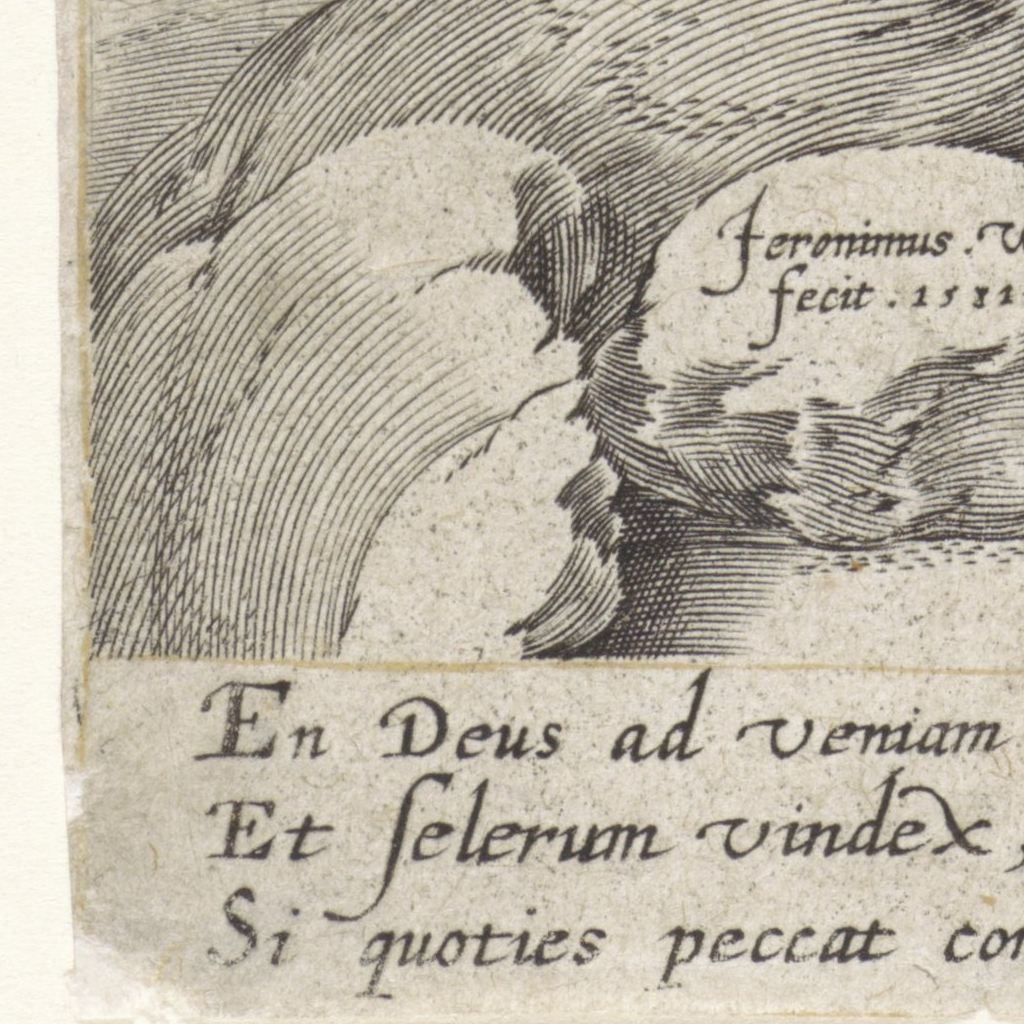 Jeronimus.
fecit. 1581
En Deus ad veniam
Et ſelerum vindex,
Si quoties peccat